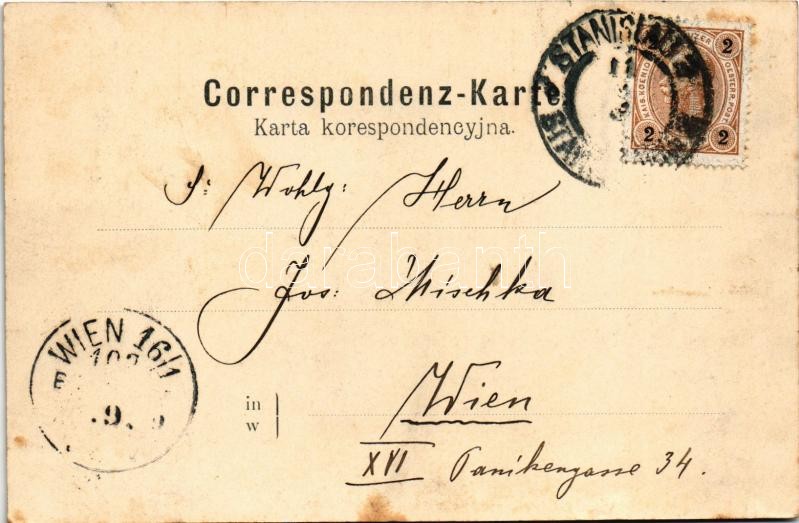 STANISLAU
11
2
2 2
KAIS. KOENIGL. OESTERR. POST
Correspondenz-Karte
Karta korespondencyjna.
S: Wohlg: Herrn
darabanth
Jos: Mischka
WIEN 16/1
.9.
in
w
Wien
XVI Panikengasse 34.